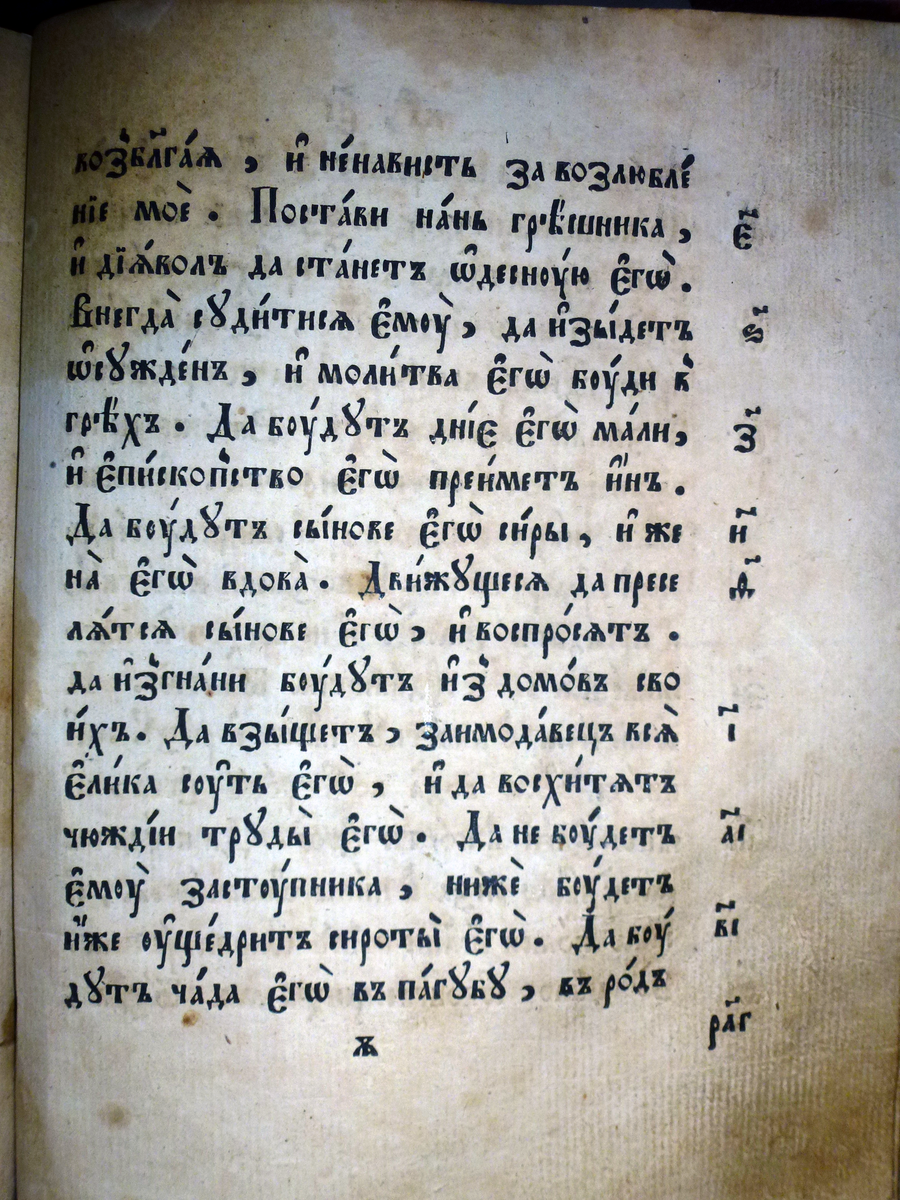 воз̾блг҃а́ѧ , и҆ не́нависть за возлюбле́
нїе моѐ . Поста́ви на́нь грѣ́шника , є҃
и҆ дїѧ́волъ да ста́нетъ ѡ҆десноу́ю є҆гѡ̀ .
Внегда̀ сꙋди́тисѧ є҆моу̀ , да и҆зы́детъ ѕ҃
ѡ҆сꙋжде́нъ , и҆ моли́тва є҆гѡ̀ боу́ди в̾
грѣ́хъ . Да боу́дꙋтъ днїє є҆гѡ̀ ма́ли , з҃
и҆ є҆пи́скопство є҆гѡ̀ преи́метъ и҆́нъ .
Да боу́дꙋтъ сы́нове є҆гѡ̀ си́ры , и҆ же и҃
на̀ є҆гѡ̀ вдова̀ . Дви́жꙋщесѧ да пресе ѳ҃
лѧ́тсѧ сы́нове є҆гѡ̀ , и҆ воспро́сѧтъ .
да и҆з̾гна́ни боу́дꙋтъ и҆з̾ домо́въ сво
и́хъ . Да взы́щетъ , заимода́вецъ всѧ̀ і҃
є҆ли́ка соу́ть є҆гѡ̀ , и҆ да восхи́тѧтъ
чюжді́и трꙋды̀ є҆гѡ̀ . Да не боу́детъ а҃і
є҆моу̀ застоу́пника , нижѐ боу́детъ
и҆́же оу҆ще́дритъ сироты̀ є҆гѡ̀ . Да боу́ в҃і
дꙋтъ ча́да є҆гѡ̀ въ па́гꙋбꙋ , въ ро́дъ
ѫ ра҃г